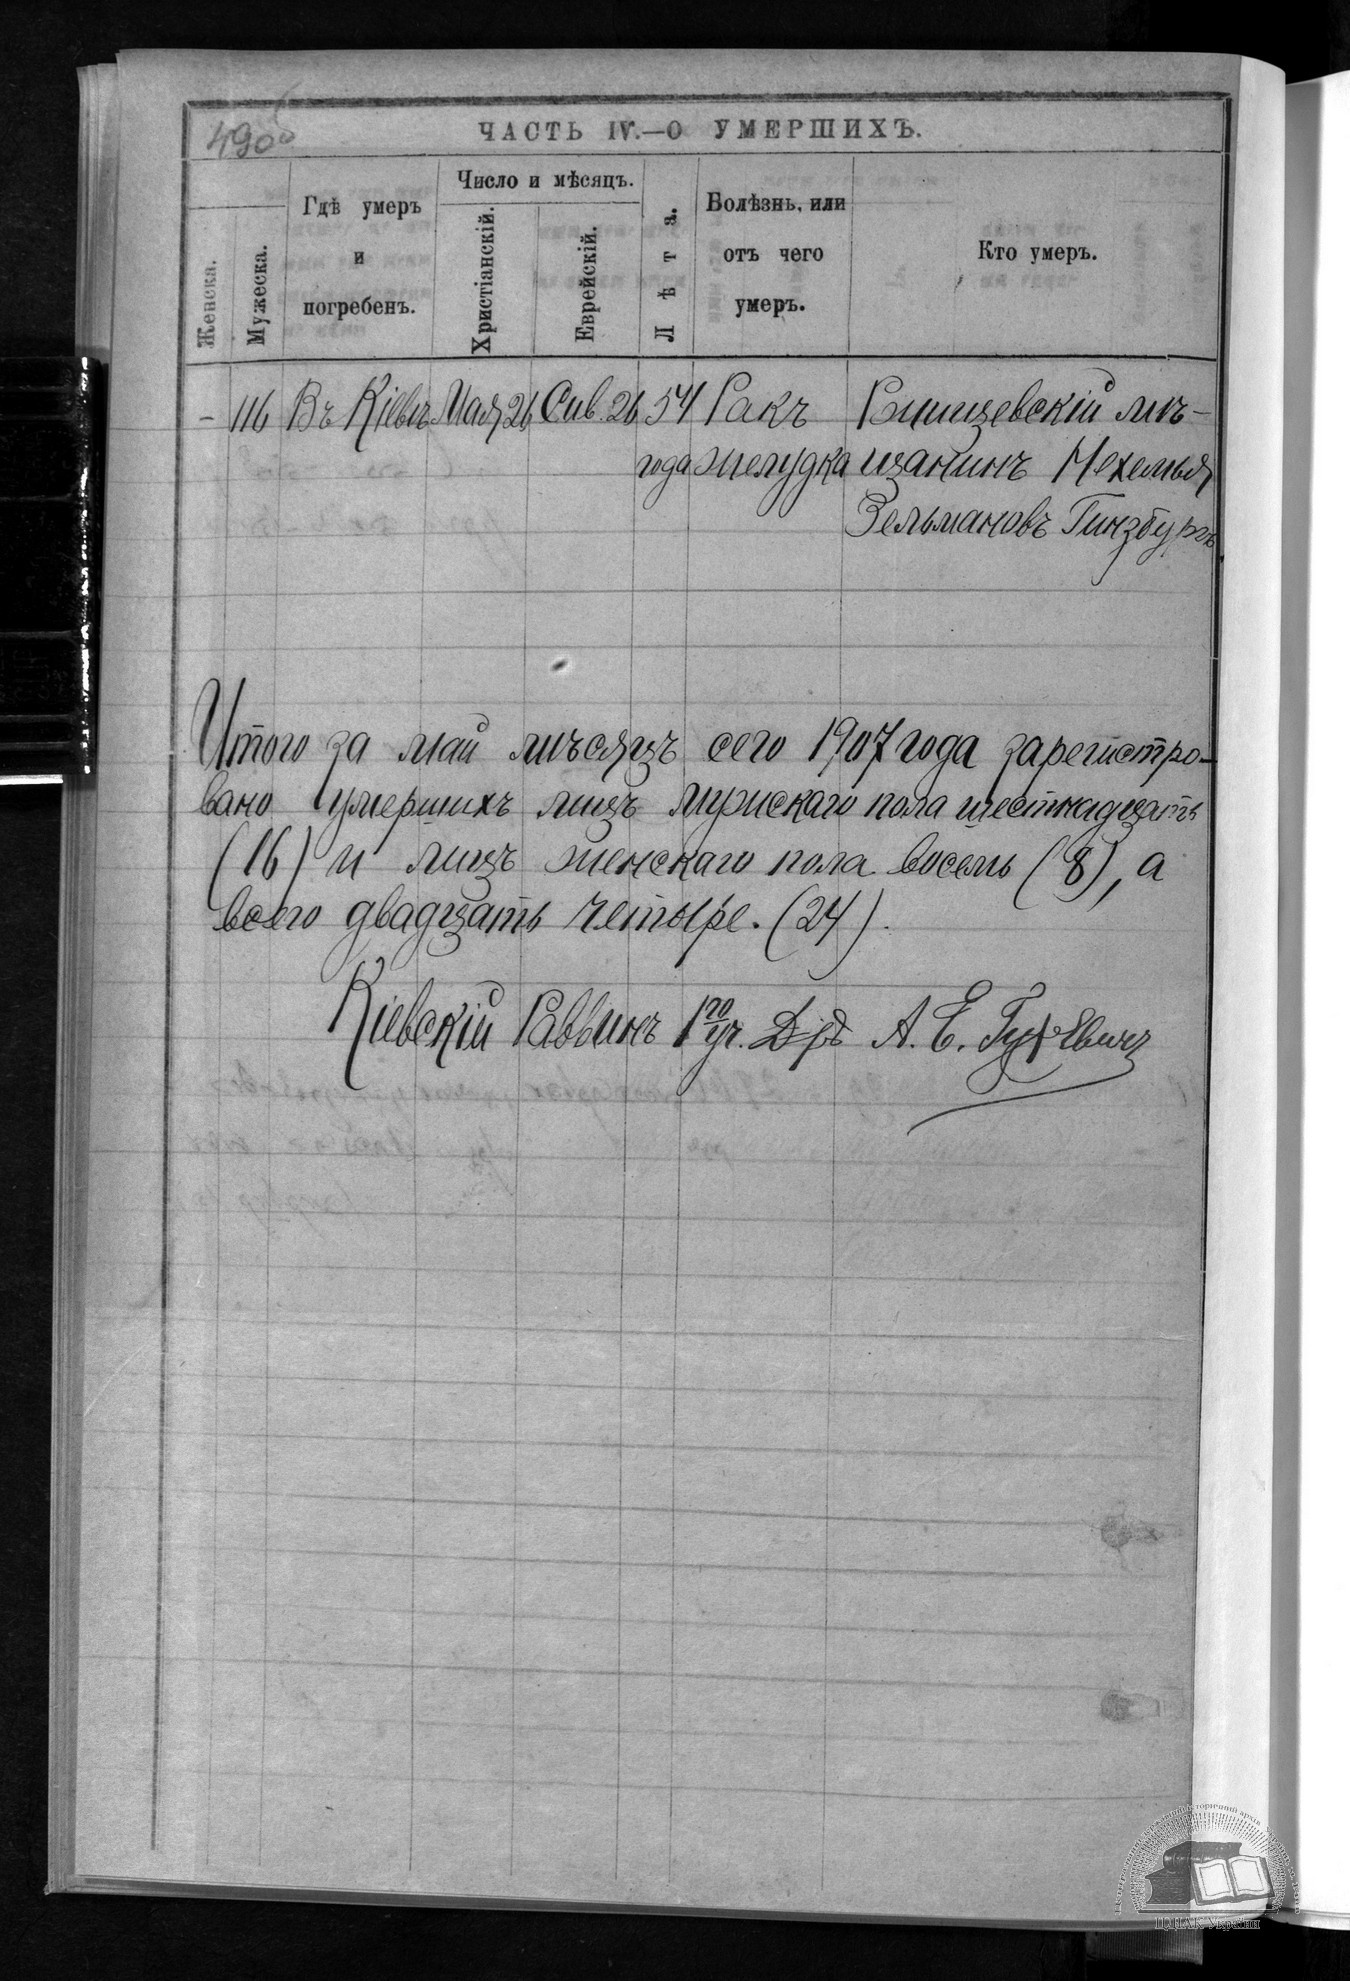 490
ЧАСТЬ IV.—О УМЕРШИХЪ.
Женска.
Мужеска.
Гдѣ умеръ
и
погребенъ.
Число и мѣсяцъ.
Христіанскій.
Еврейскій.
Лѣта.
Болѣзнь, или
отъ чего
умеръ.
Кто умеръ.
– 116 Въ Кіевѣ Мая 26 Сив. 26 54 Ракъ Ржищевскій мѣ-
года желудка щанинъ Мехель
Зельмановъ Гинзбургъ
Итого за май мѣсяцъ сего 1907 года зарегистро-
вано умершихъ лицъ мужскаго пола шестнадцать
(16) и лицъ женскаго пола восемь (8), а
всего двадцать четыре. (24).
Кіевскій Раввинъ 1го уч. Д-ръ А. Е. Гуревичъ
ЦДІАК України